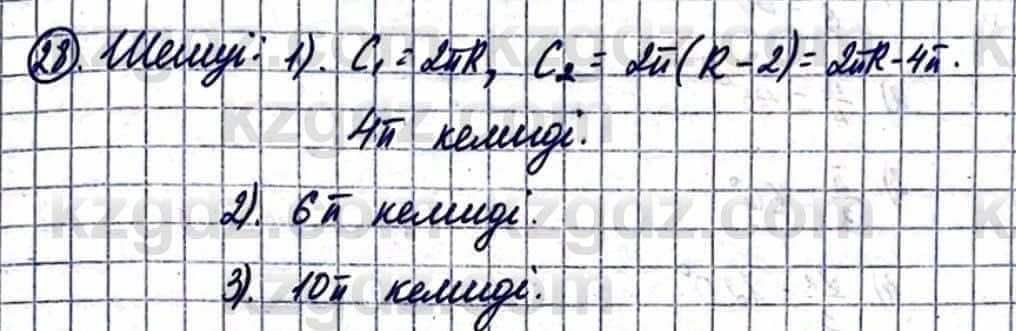 28. Шешуі: 1). C₁ = 2πR, C₂ = 2π(R - 2) = 2πR - 4π.
4π кемиді.
2). 6π кемиді.
3). 10π кемиді.
kzgdz.com